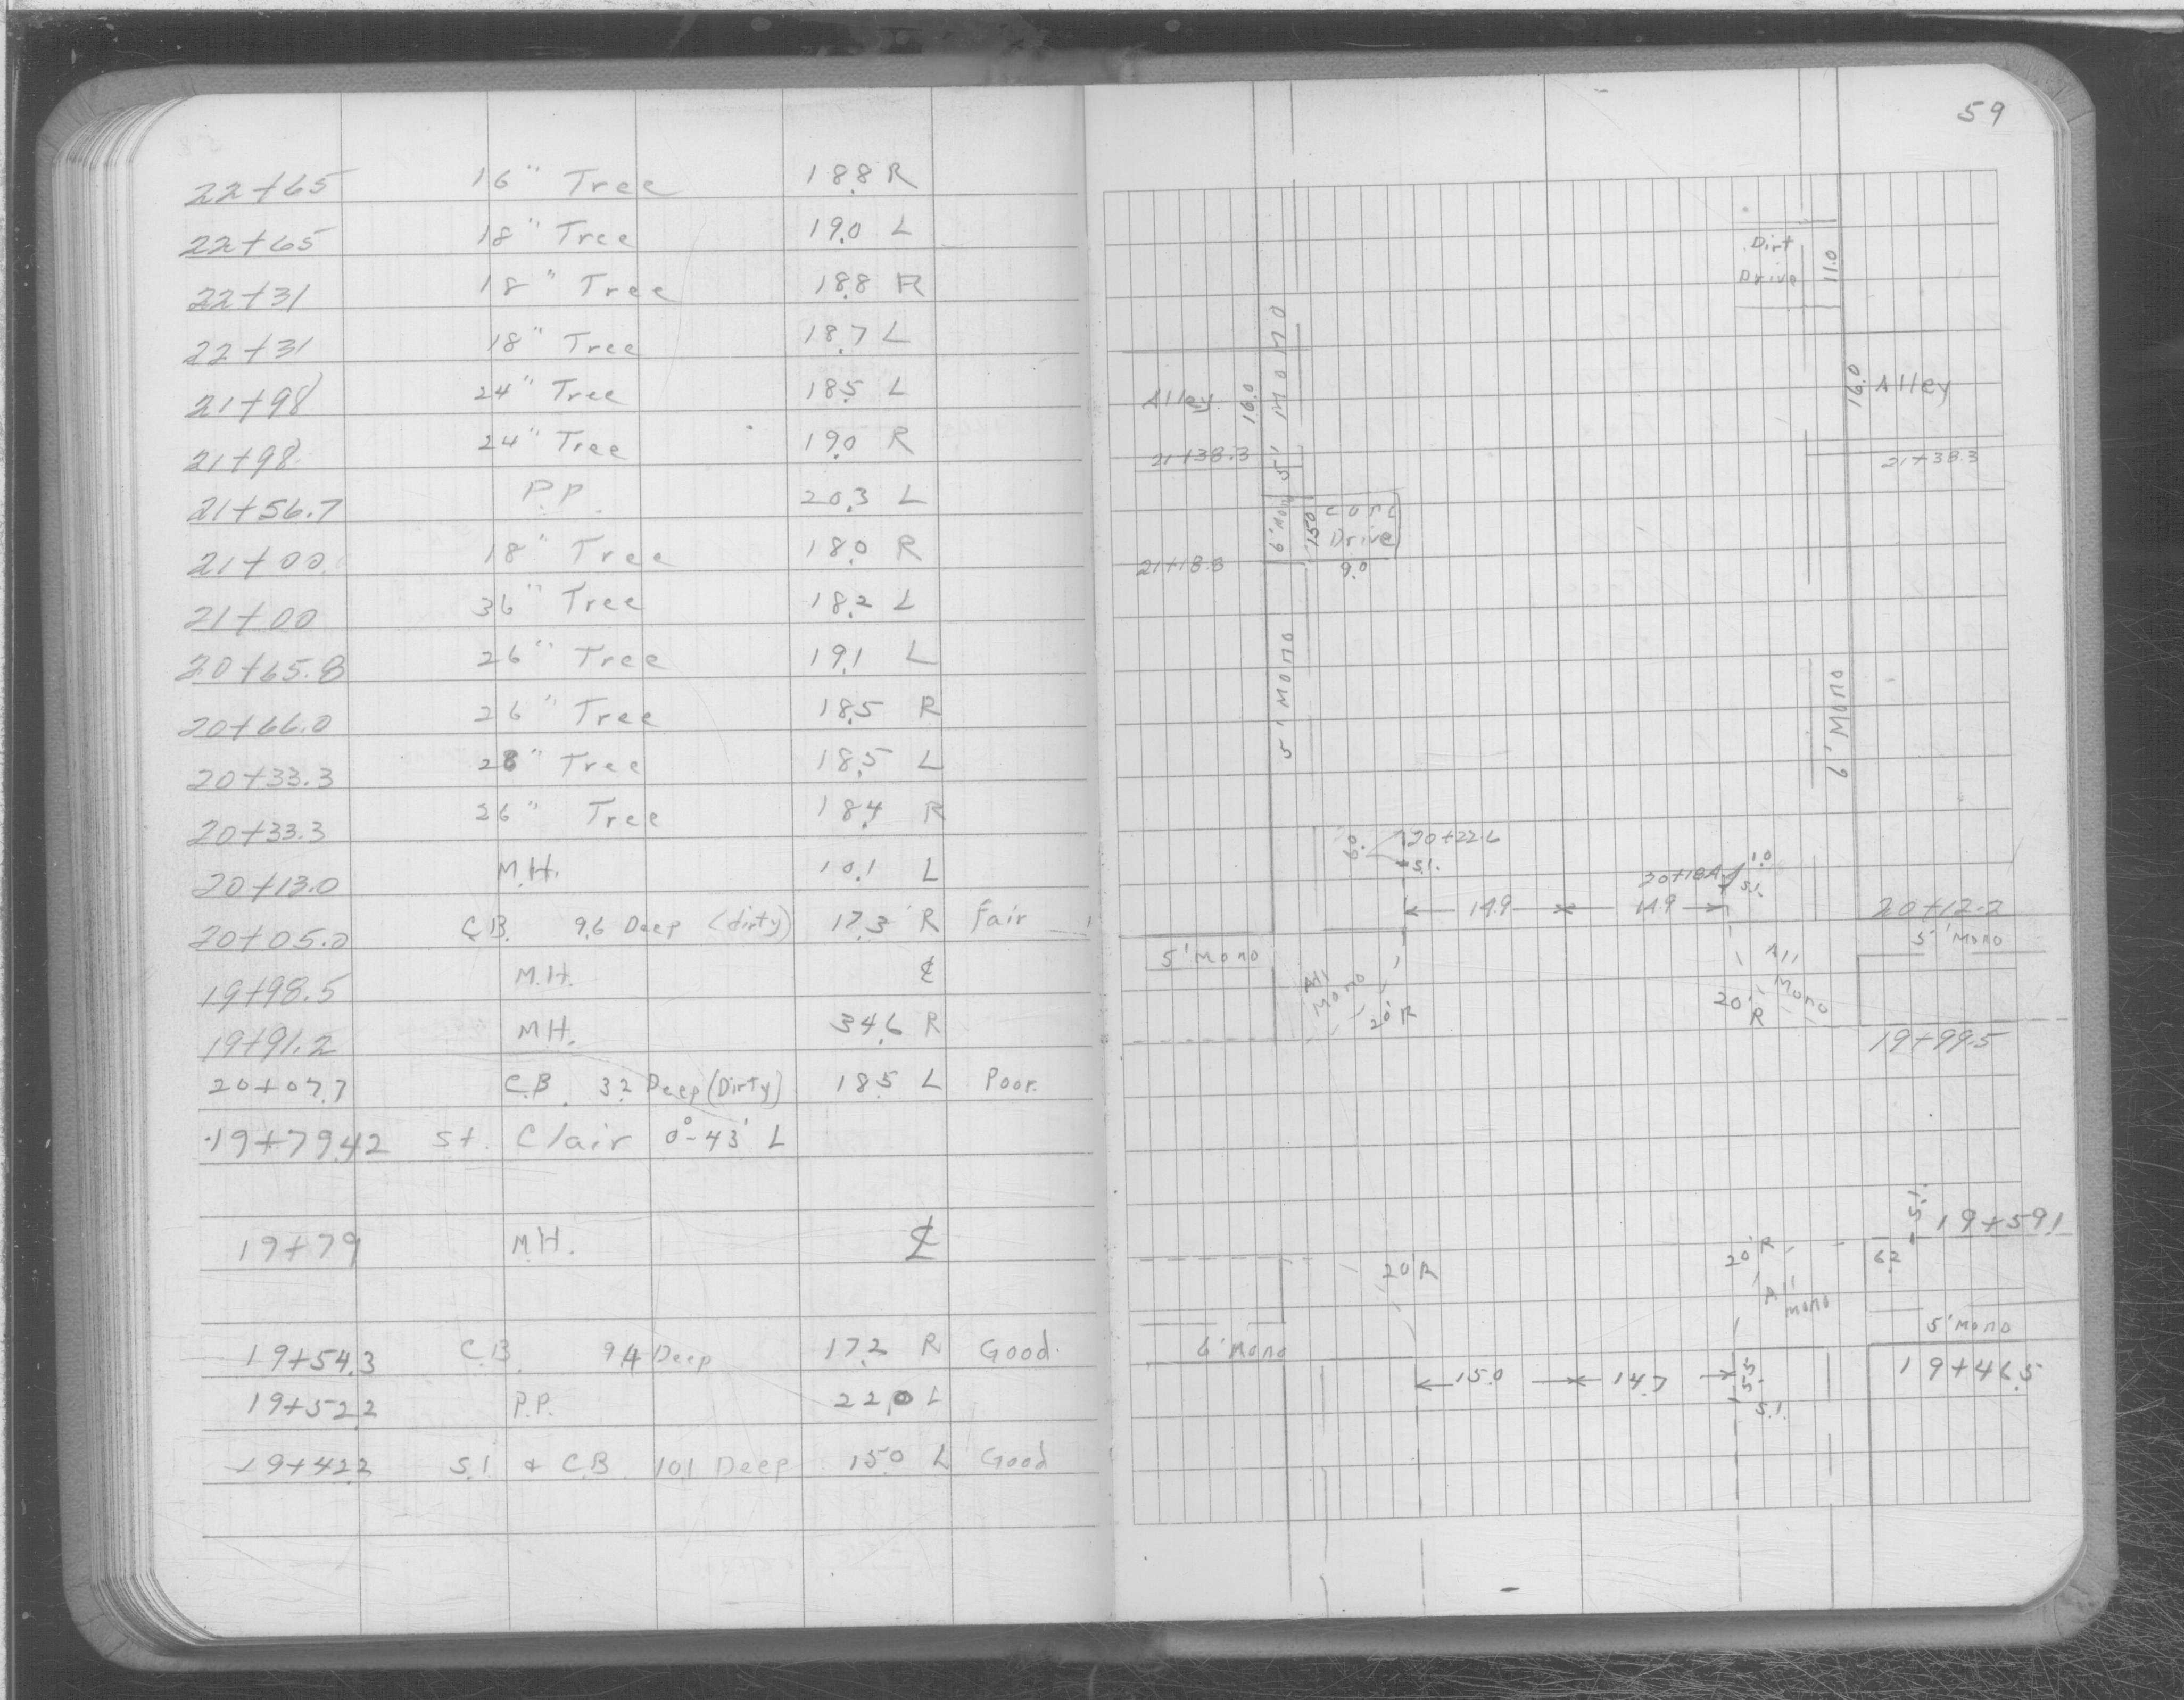 22+65 16" Tree 18.8 R
22+65 18" Tree 19.0 L
22+31 18" Tree 18.8 R
22+31 18" Tree 18.7 L
21+98 24" Tree 18.5 L
21+98 24" Tree 19.0 R
21+56.7 P.P. 20.3 L
21+00 18" Tree 18.0 R
21+00 36" Tree 18.2 L
20+65.8 26" Tree 19.1 L
20+66.0 26" Tree 18.5 R
20+33.3 28" Tree 18.5 L
20+33.3 26" Tree 18.4 R
20+13.0 M.H. 10.1 L
20+05.0 C.B. 9.6 Deep (dirty) 17.3 R fair
19+98.5 M.H. ℄
19+91.2 M.H. 34.6 R
20+07.7 C.B. 3.2 Deep (Dirty) 18.5 L Poor.
19+79.42 St. Clair 0°-43' L
19+79 M.H. ℄
19+54.3 C.B. 9.4 Deep 17.2 R Good.
19+52.2 P.P. 22.0 L
19+42.2 S.I. & C.B. 10.1 Deep 15.0 L Good
59
Dirt
Drive
11.0
Alley
16.0
5' Mono
16.0
Alley
21+38.3
21+38.3
6' Mono
15.0
Conc
Drive
21+18.3
9.0
5' Mono
6' Mono
6.0
20+22.6
S.I.
1.0
S.I.
14.9
14.9
20+12.2
5' Mono
5' Mono
All
Mono
20' R
All
Mono
20'
R
19+99.5
S.I.
19+59.1
20' R
20' R
6.2
All
Mono
5' Mono
6' Mono
15.0
14.7
5.5
S.I.
19+46.5